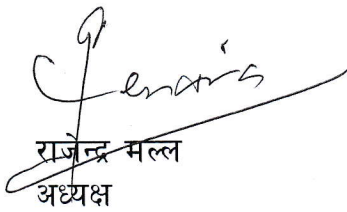 राजेन्द्र मल्ल
अध्यक्ष